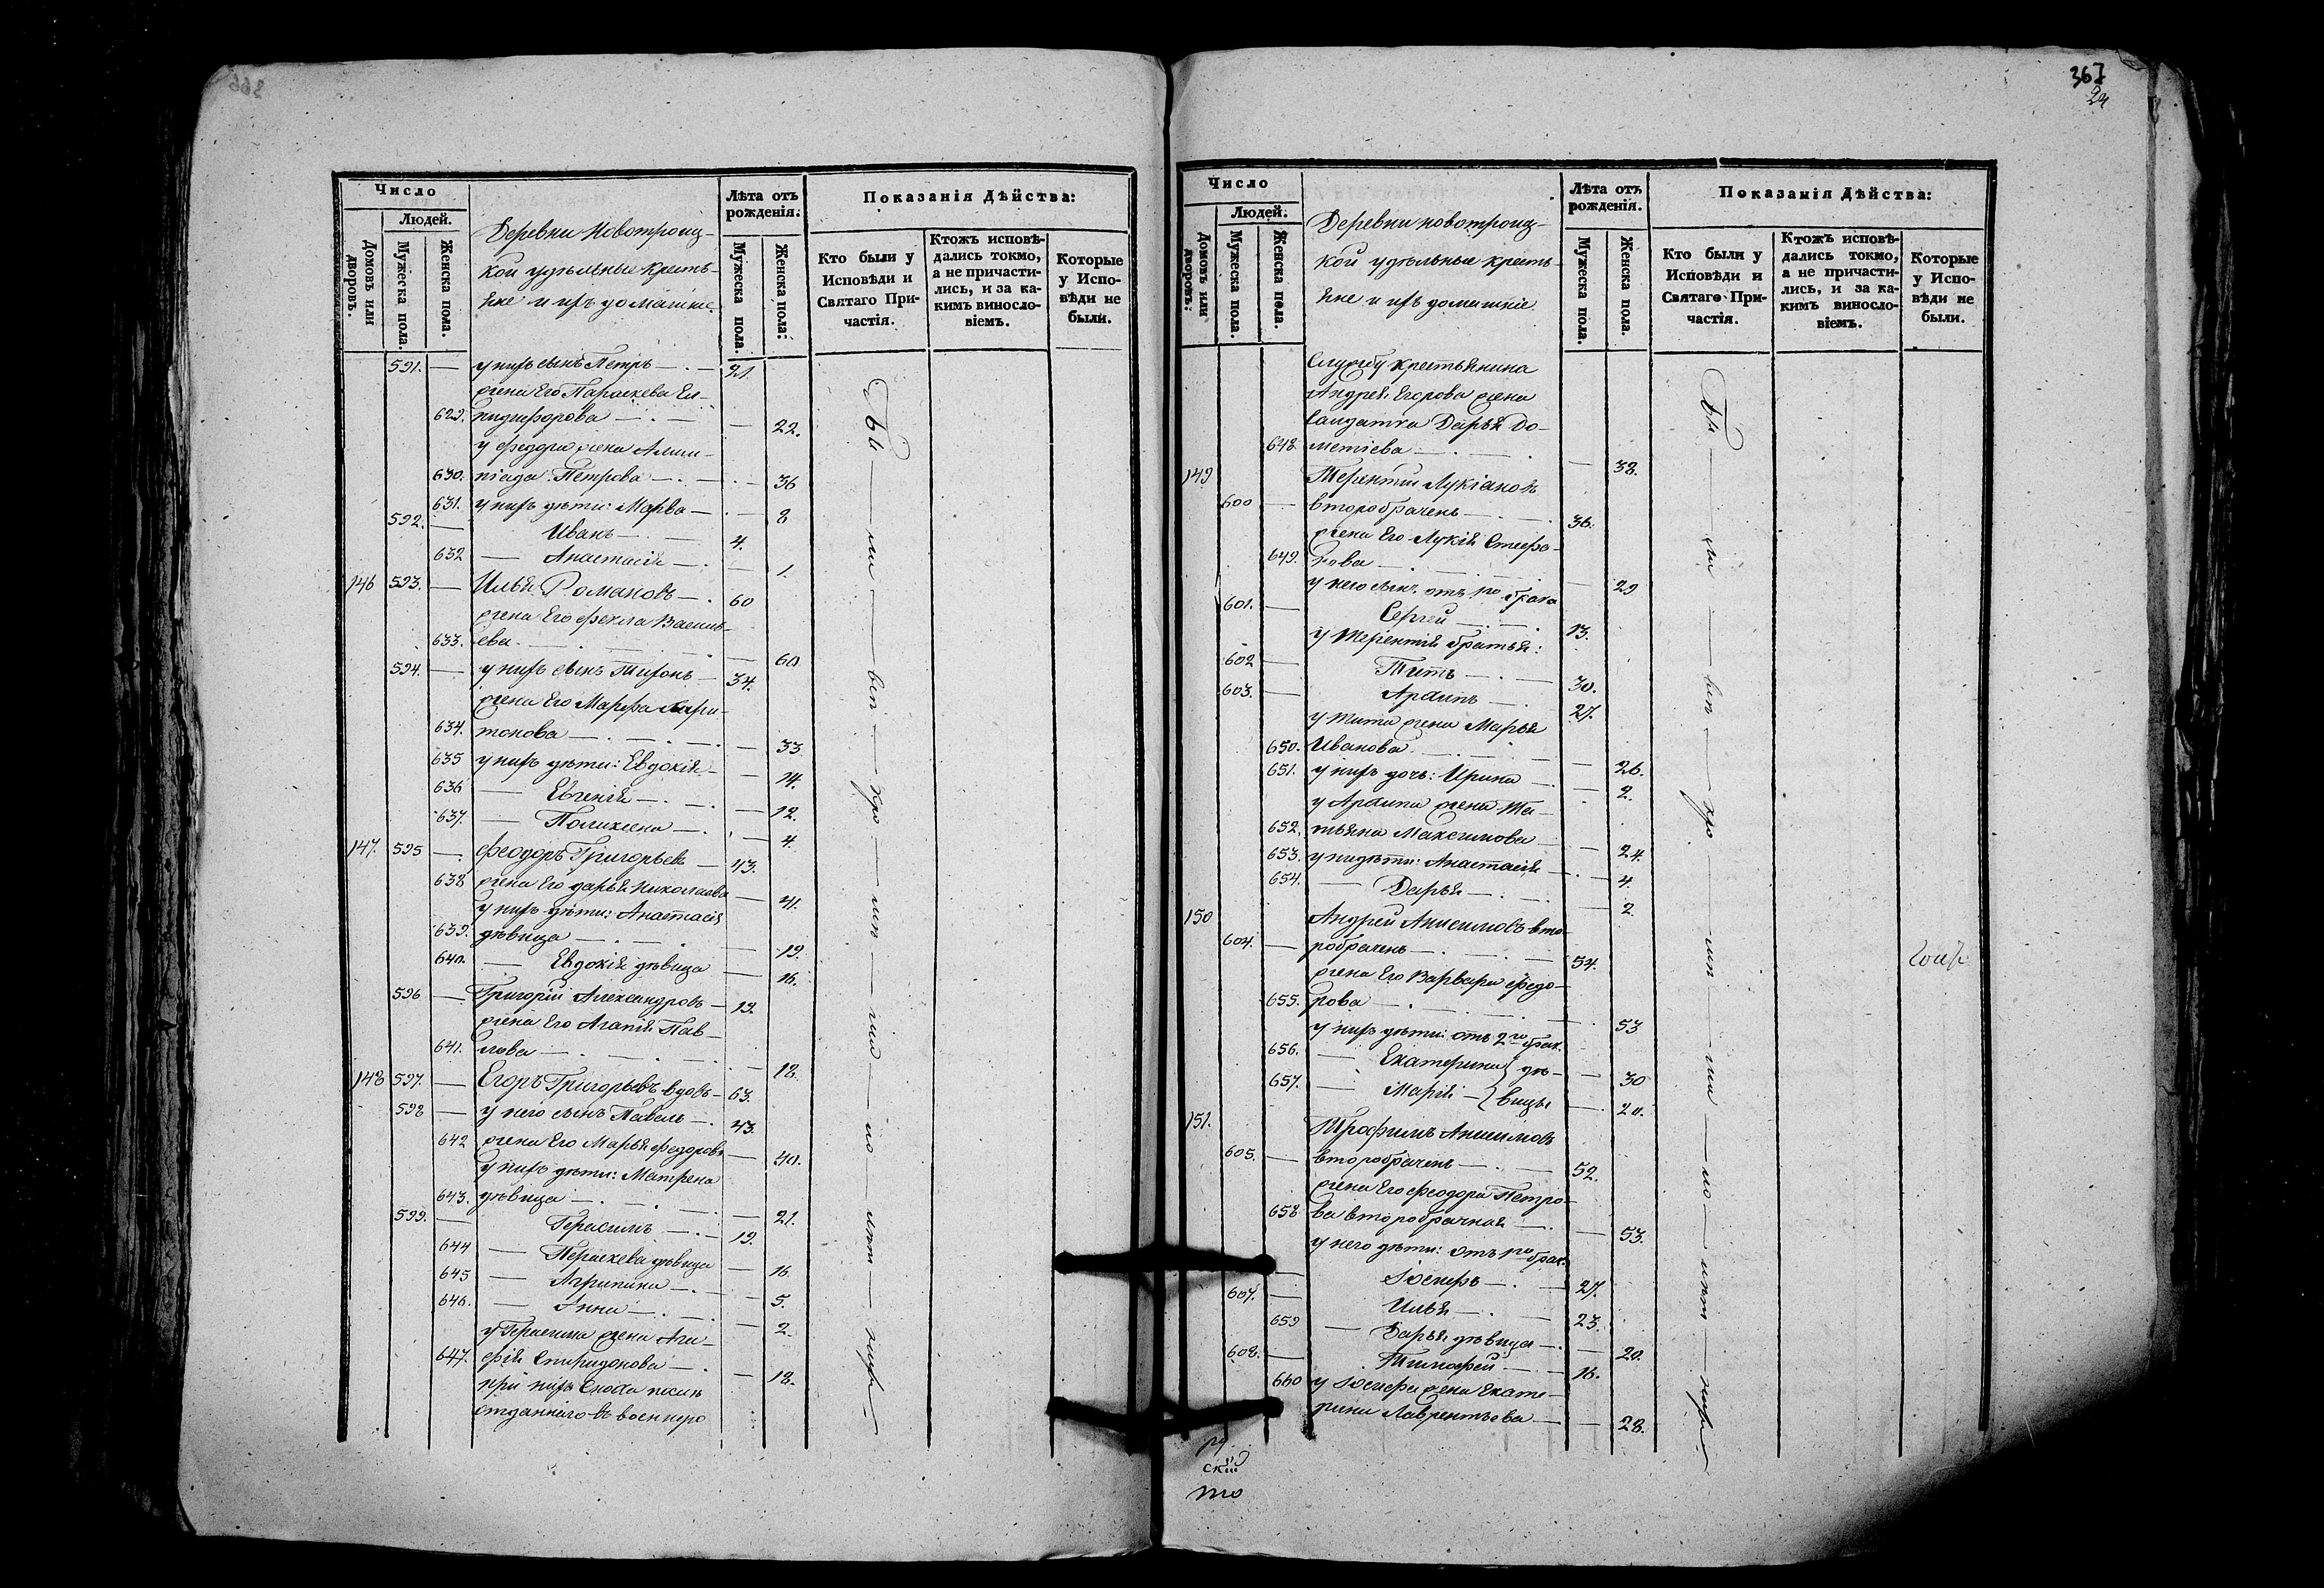 367
24
Число
Людей.
Домовъ или дворовъ.
Мужеска пола.
Женска пола.
Деревни Новотроиц-
кой удѣльные кресть-
яне и ихъ домашніе.
Лѣта отъ рожденія.
Мужеска пола.
Женска пола:
Показанія Дѣйства:
Кто были у Исповѣди и Святаго Причастія.
Ктожъ исповѣ-
дались токмо,
а не причасти-
лись, и за ка-
кимъ винословіемъ.
Которые у Исповѣди не были.
591. — у нихъ сынъ Петръ — 21
жена Его Параскева Ел-
629. пидифорова — 22.
у Феодора жена Алим-
630. піада Петрова — 36
631. у нихъ дѣти: Марѳа — 8
592. — Иванъ — 4.
632 — Анастасія — 1.
146 593. — Илья Романовъ — 60
жена Его Фекла Василь-
633. ева — 60
594. — у нихъ сынъ Тихонъ — 34.
жена Его Марфа Хари-
634. тонова — 33
635 у нихъ дѣти: Евдокія — 14.
636 — Евгенія — 12.
637. — Поликсена — 4.
147. 595 — Феодоръ Григорьевъ — 43.
638 жена Его Дарья Николаева — 41.
у нихъ дѣти: Анастасія
639. дѣвица — 19.
640. — Евдокія дѣвица — 16.
596 — Григорій Александровъ — 19.
жена Его Агапія Пав-
641. лова — 18.
148 597. — Егоръ Григорьевъ вдовъ — 63.
598 — у него сынъ Павелъ — 43.
642 жена Его Марья Федорова — 40.
у нихъ дѣти: Матрена
643. дѣвица — 21.
599. — Герасимъ — 19.
644 — Параскева дѣвица — 16
645 — Агрипина — 5.
646. — Анна — 2.
у Герасима жена Ага-
647. фія Спиридонова — 18.
при нихъ сноха послѣ
отданнаго въ военную
Бы — ли — вѣ —
Число
Людей.
Домовъ или дворовъ.
Мужеска пола.
Женска пола.
Деревни новотроиц-
кой удѣльные кресть-
яне и ихъ домашніе
Лѣта отъ рожденія.
Мужеска пола.
Женска пола.
Показанія Дѣйства:
Кто были у Исповѣди и Святаго Причастія.
Ктожъ исповѣ-
дались токмо,
а не причасти-
лись, и за ка-
кимъ винословіемъ.
Которые у Исповѣди не были.
службу крестьянина
Андрея Егорова жена
солдатка Дарья До-
648. метіева — 38.
149 Терентій Лукіановъ
600 — второбраченъ — 36.
жена Его Лукія Стефа-
649. нова — 29
у него сынъ отъ 1го брака
601. — Сергей — 13.
у Терентія братья:
602 — Титъ — 30.
603. — Архипъ — 27.
у Тита жена Марья
650. Иванова — 26.
651. у нихъ дочь: Ирина — 2.
у Архипа жена Та-
652. тьяна Максимова — 24.
653. у нихъ дѣти: Анастасія — 4.
654. — Дарья — 2.
150 Андрей Анисимовъ вто-
604. — робраченъ — 54.
жена Его Варвара Федо-
655. рова — 53
у нихъ дѣти: отъ 2го брак.
656. — Екатерина } дѣ- — 30
657. — Марія — } вицы — 20.
151. Трофимъ Анисимовъ
605. — второбраченъ — 52.
жена Его Феодора Петро-
658. ва второбрачная — 53.
у него дѣти: отъ 1го брак.
— Іосифъ — 27.
607. — Илья — 23.
659 — Дарья дѣвица — 20.
608. — Тимофей — 16.
660 у Іосифа жена Екате-
рина Лаврентьева — 28.
Бы — ли —
скій
то